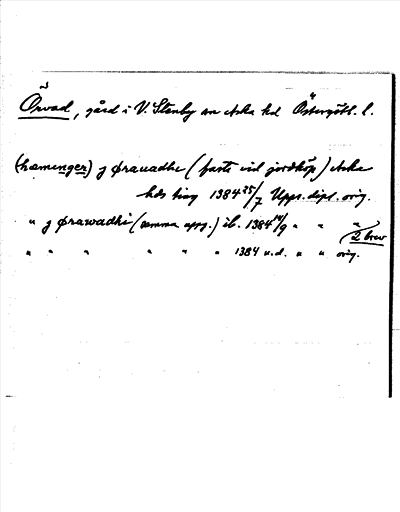 Örvad, gård i V. Stenby sn Aska hd Östergötl. l.
(hæmenger) j ørauadhe (fasta vid jordköp) Aska
hds ting 1384 25/7 Upps. dipl. orig.
" j ørawadhi (samma uppg.) ib. 1384 14/9 " " "
2 brev
" " " " " " 1384 u.d. " " orig.